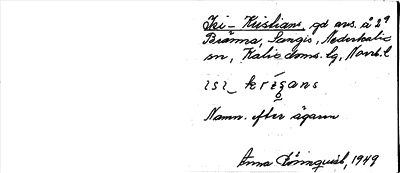 Isi-Kristians, gd avs. å 2⁹
Brännа, Sangis, Nederkalix
sn, Kalix doms. lg, Norrb. l
Namn. efter ägaren
Anna Lönnqvist, 1949